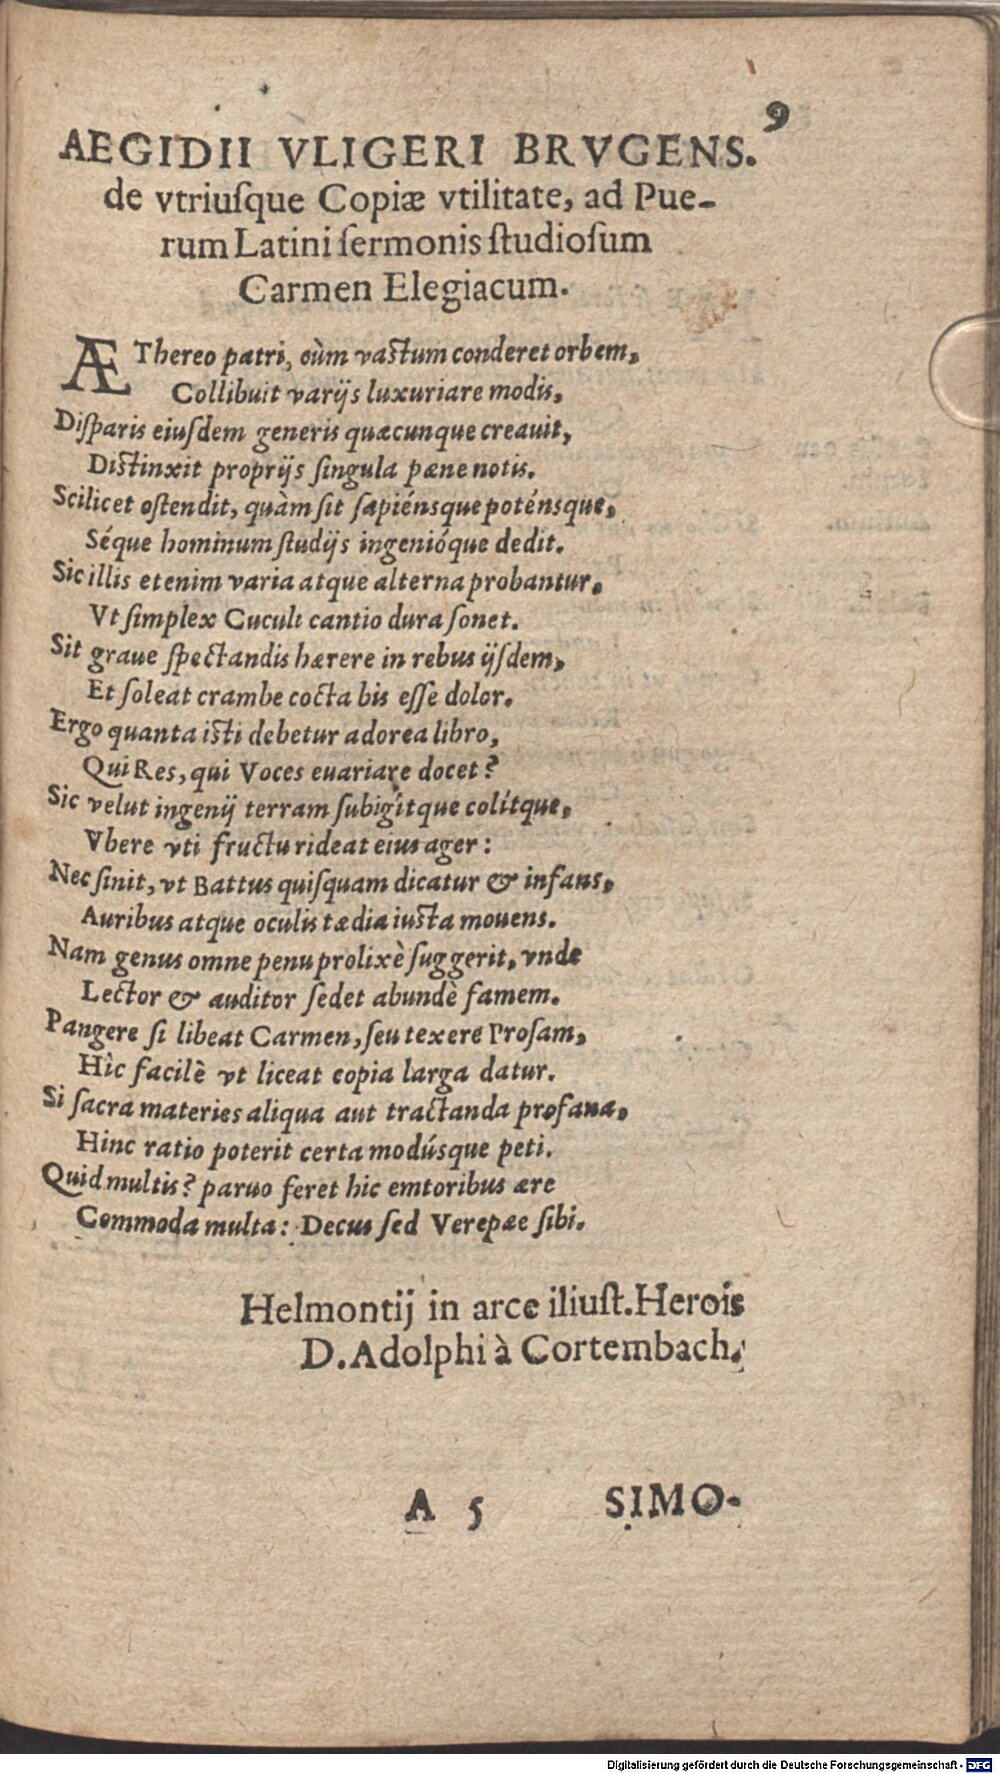 9
AEGIDII VLIGERI BRVGENS.
de vtriuſque Copiæ vtilitate, ad Pue-
rum Latini ſermonis ſtudioſum
Carmen Elegiacum.
ÆThereo patri, cùm vaſtum conderet orbem,
Collibuit varijs luxuriare modis,
Diſparis eiuſdem generis quæcunque creauit,
Diſtinxit proprijs ſingula pæne notis.
Scilicet oſtendit, quàm ſit ſapiénsque poténsque,
Séque hominum ſtudijs ingenióque dedit.
Sic illis etenim varia atque alterna probantur,
Vt ſimplex Cuculi cantio dura ſonet.
Sit graue ſpectandis hærere in rebus ijſdem,
Et ſoleat crambe cocta bis eſſe dolor.
Ergo quanta iſti debetur adorea libro,
Qui Res, qui Voces euariare docet?
Sic velut ingenij terram ſubigítque colítque,
Vbere vti fructu rideat eius ager:
Nec ſinit, vt Battus quiſquam dicatur & infans,
Auribus atque oculis tædia iuſta mouens.
Nam genus omne penu prolixè ſuggerit, vnde
Lector & auditor ſedet abundè famem.
Pangere ſi libeat Carmen, ſeu texere Proſam,
Hìc facilè vt liceat copia larga datur.
Si ſacra materies aliqua aut tractanda profana,
Hinc ratio poterit certa modúsque peti.
Quid multis? paruo feret hic emtoribus ære
Commoda multa: Decus ſed Verepæe ſibi.
Helmontij in arce illuſt. Herois
D. Adolphi à Cortembach.
A 5 SIMO-
Digitalisierung gefördert durch die Deutsche Forschungsgemeinschaft - DFG